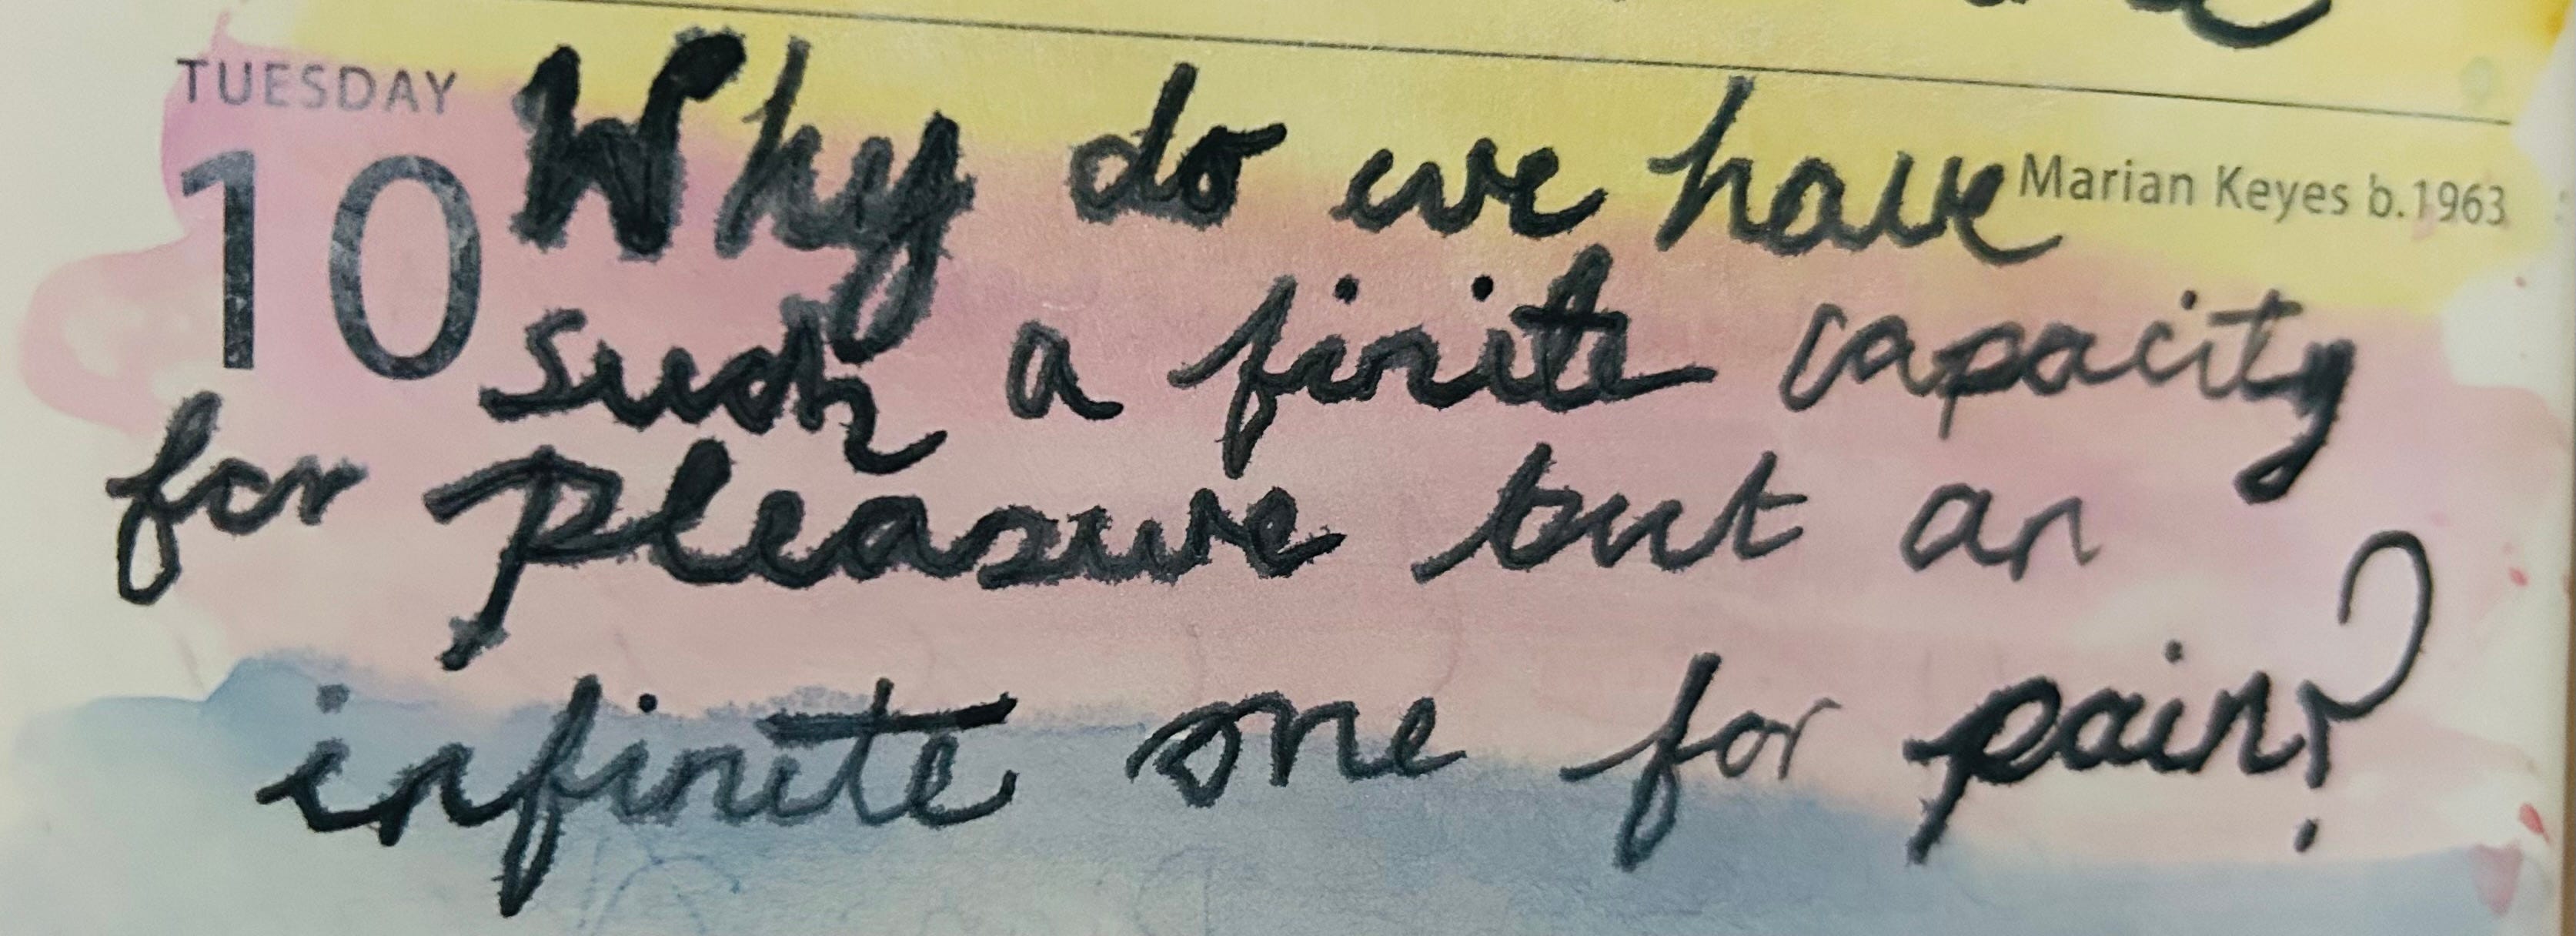 TUESDAY
10
Why do we have
Marian Keyes b.1963
such a finite capacity
for pleasure but an
infinite one for pain?